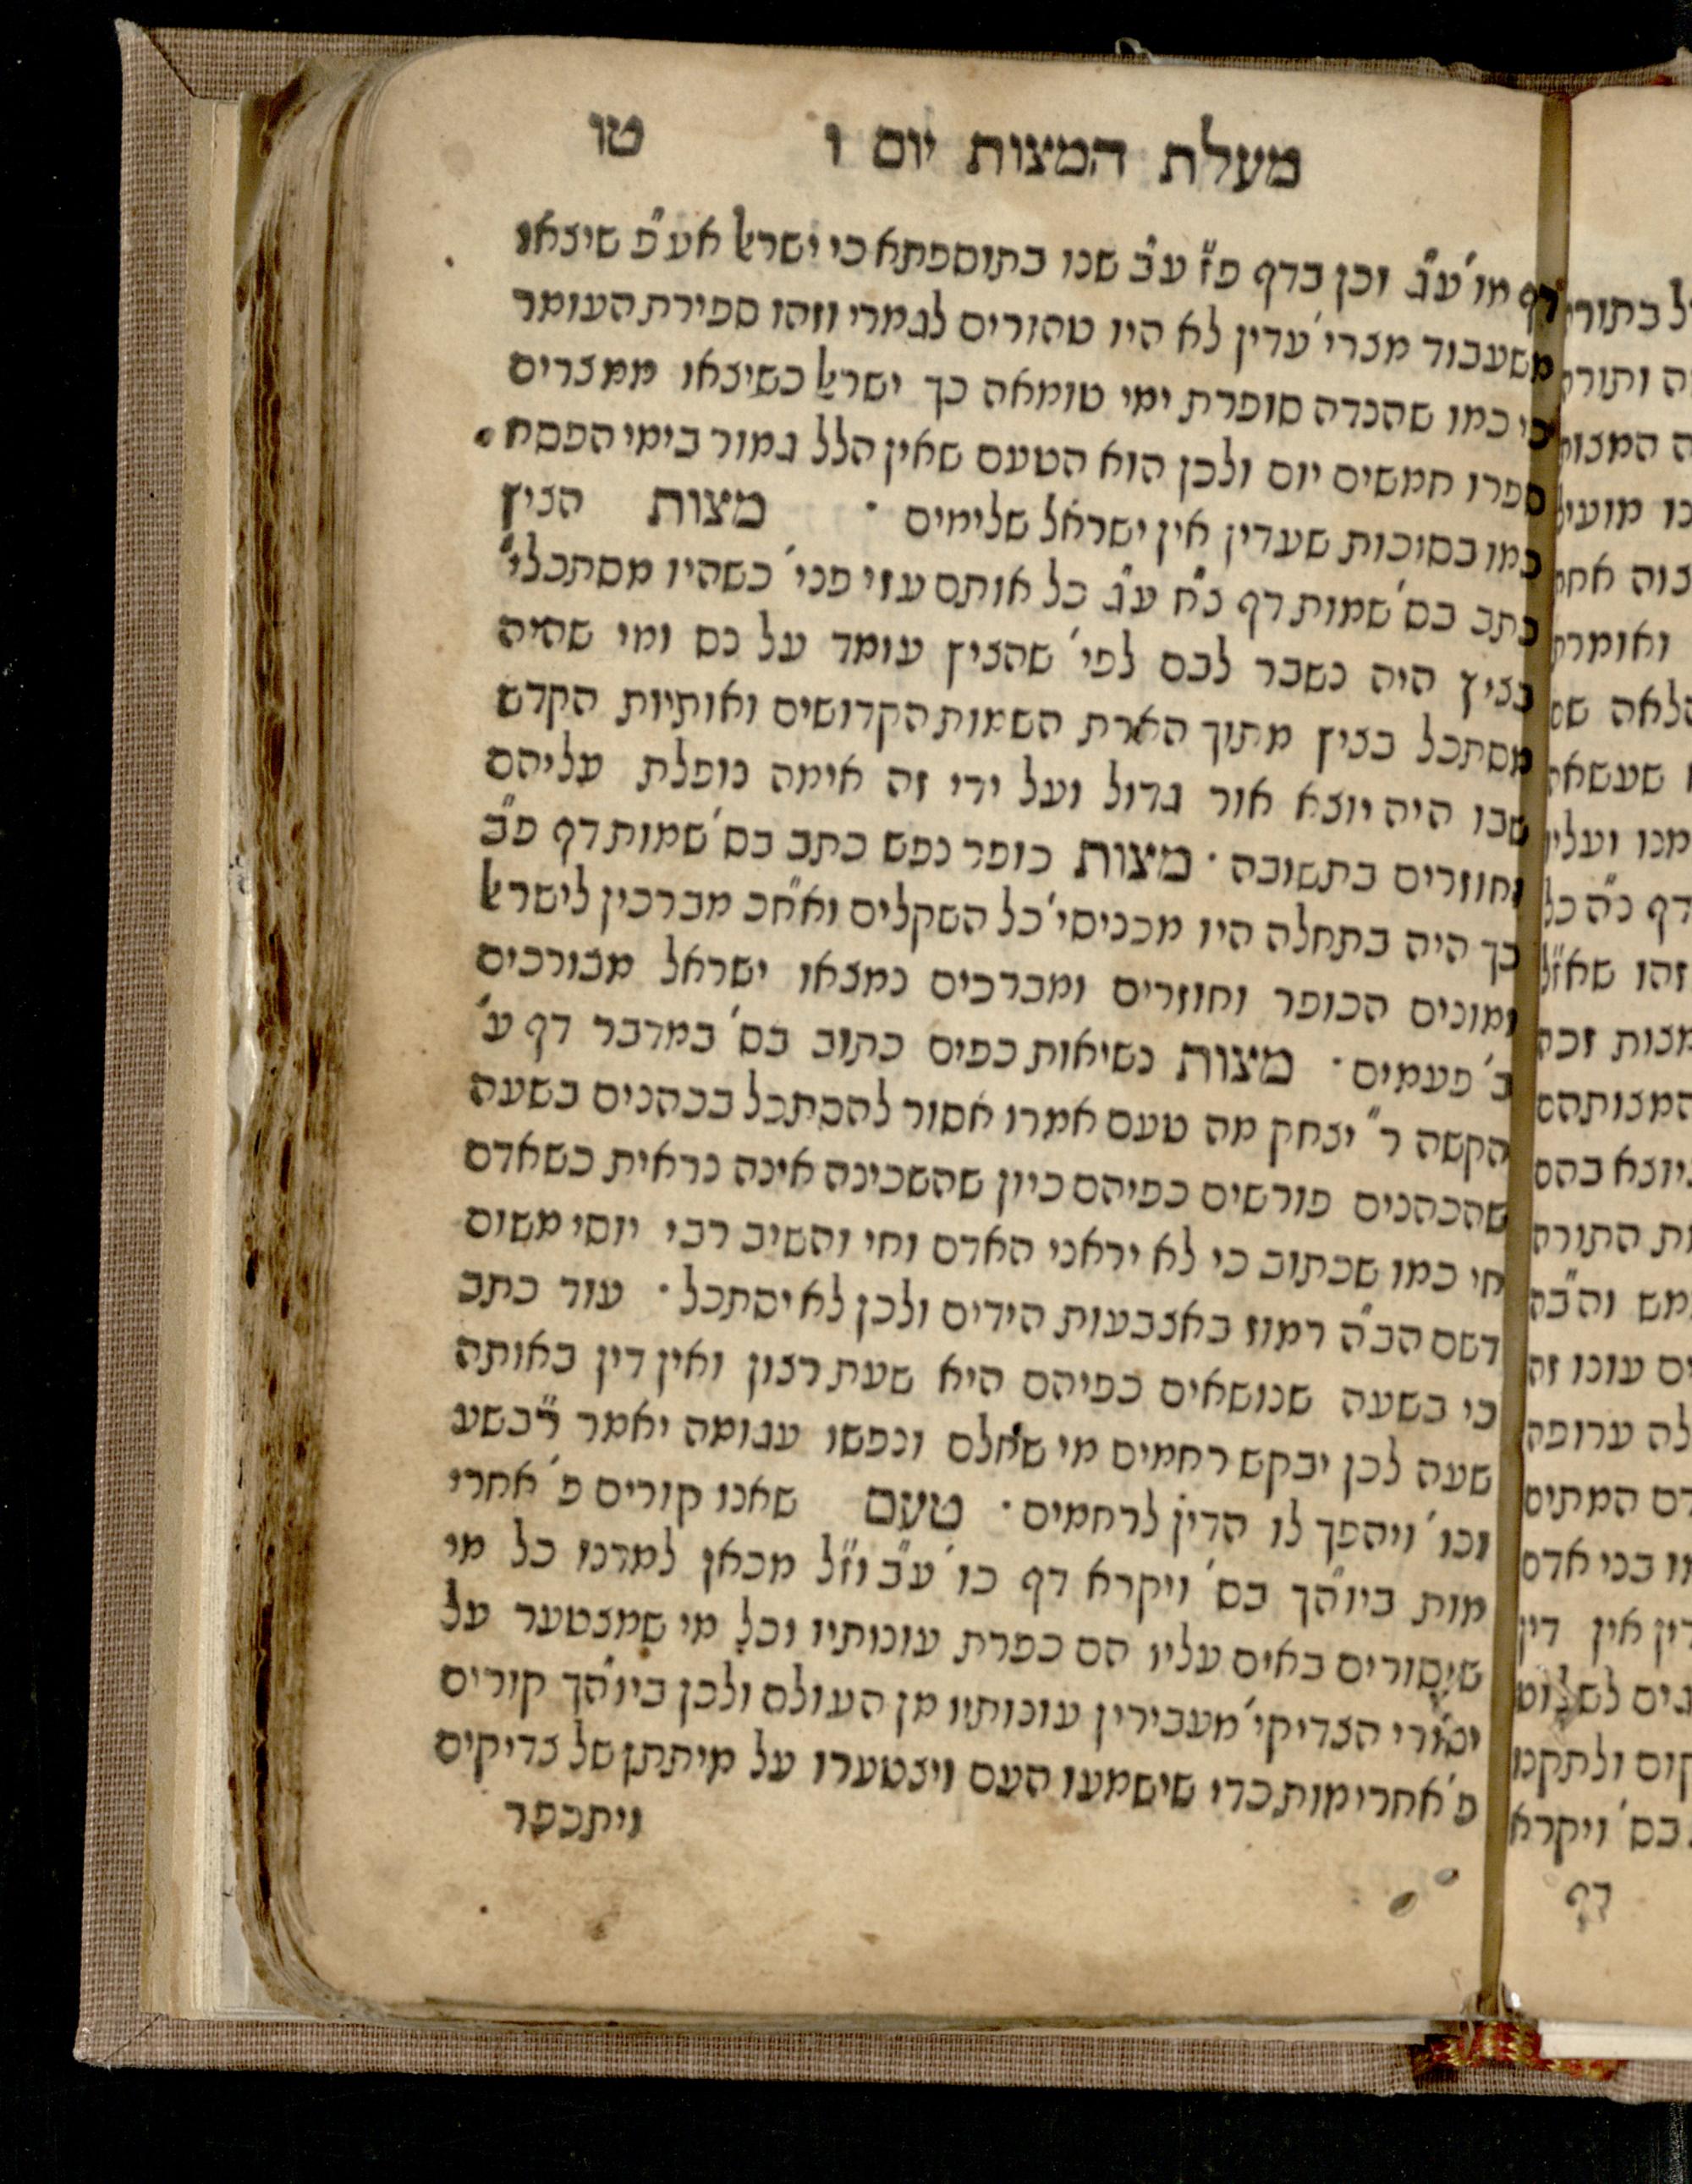 מעלת המצות יום ו טו
דף מו' ע"ג וכן בדף פ"ז ע"ב שנו בתוספתא כי ישראל אע"פ שיצאו
משעבוד מצרי' עדין לא היו טהורים לגמרי וזהו ספירת העומר
כי כמו שהנדה סופרת ימי טומאה כך ישראל כשיצאו ממצרים
ספרו חמשים יום ולכן הוא הטעם שאין הלל גמור בימי הפסח
כמו בסוכות שעדין אין ישראל שלימים · מצות הציץ
כתב בס' שמות דף כ"ח ע"ג כל אותם עזי פני' כשהיו מסתכלי'
בציץ היה נשבר לבם לפי' שהציץ עומד על נס ומי שהיה
מסתכל בציץ מתוך הארת השמות הקדושים ואותיות הקדש
שבו היה יוצא אור גדול ועל ידי זה אימה נופלת עליהם
וחוזרים בתשובה · מצות כופר נפש כתב בס' שמות דף פ"ב
כך היה בתחלה היו מכניסי' כל השקלים וא"חכ מברכין לישראל
ומונים הכופר וחוזרים ומברכים נמצאו ישראל מבורכים
ב' פעמים · מצות נשיאות כפים כתוב בס' במדבר דף ע'
הקשה ר" יצחק מה טעם אמרו אסור להסתכל בכהנים בשעה
שהכהנים פורשים כפיהם כיון שהשכינה אינה נראית כשאדם
חי כמו שכתוב כי לא יראני האדם וחי והשיב רבי יוסי משום
דשם הב"ה רמוז באצבעות הידים ולכן לא יסתכל · עוד כתב
כי בשעה שנושאים כפיהם היא שעת רצון ואין דין באותה
שעה לכן יבקש רחמים מי שחלם ונפשו עגומה יאמר ר"בשע
וכו' ויהפך לו הדין לרחמים · טעם שאנו קורים פ' אחרי
מות ביו"הך בס' ויקרא דף כו' ע"ב וז"ל מכאן למדנו כל מי
שיסורים באים עליו הם כפרת עונותיו וכל מי שמצטער על
יסורי הצדיקי' מעבירין עונותיו מן העולם ולכן ביו"הך קורים
פ' אחרי מות כדי שישמעו העם ויצטערו על מיתתן של צדיקים
ויתכפר